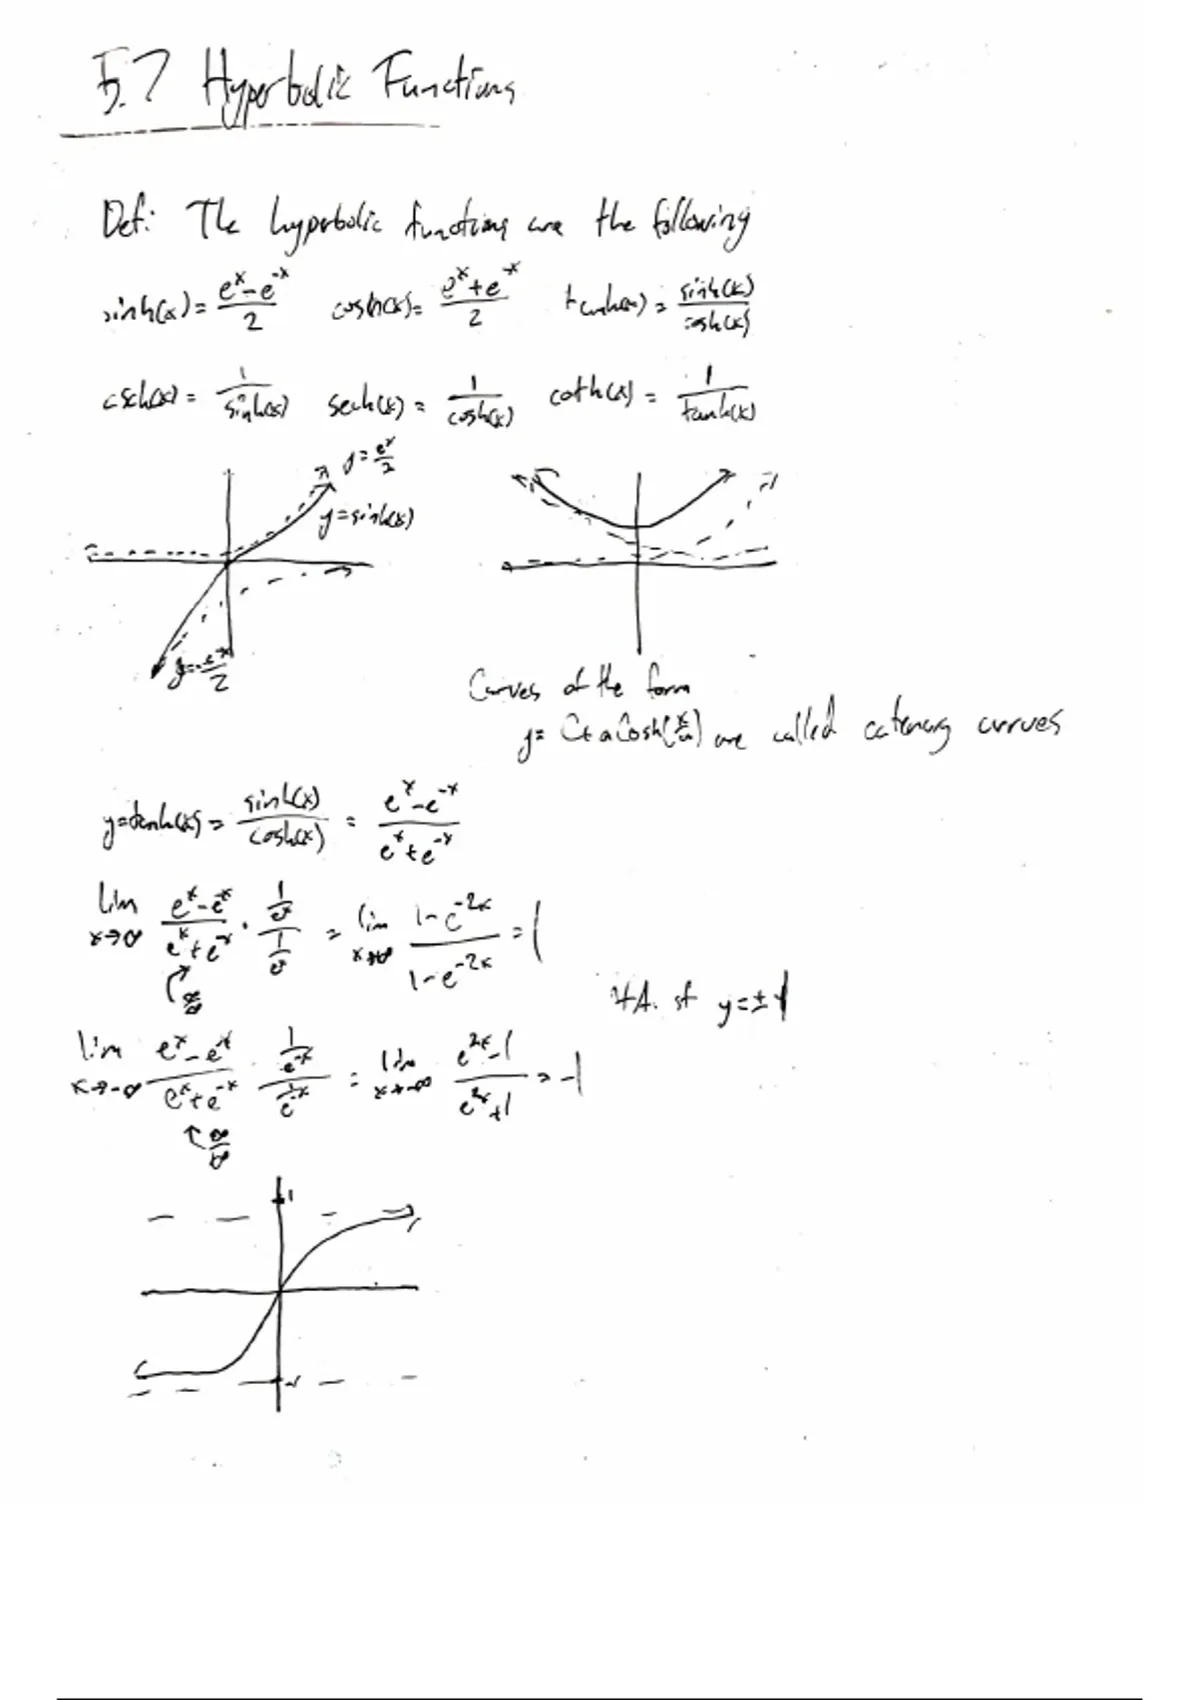 5.7 Hyperbolic Functions
Def: The hyperbolic functions are the following
sinh(x) = (e^x - e^-x)/2 cosh(x) = (e^x + e^-x)/2 tanh(x) = sinh(x)/cosh(x)
csch(x) = 1/sinh(x) sech(x) = 1/cosh(x) coth(x) = 1/tanh(x)
y = e^x/2
y = sinh(x)
y = -e^-x/2
Curves of the form
y = C + a cosh(x/a) are called catenary curves
y = tanh(x) = sinh(x)/cosh(x) = (e^x - e^-x)/(e^x + e^-x)
lim x→∞ (e^x - e^-x)/(e^x + e^-x) · (1/e^x)/(1/e^x) = lim x→∞ (1 - e^-2x)/(1 - e^-2x) = 1
∞/∞
H.A. at y = ±1
lim x→-∞ (e^x - e^-x)/(e^x + e^-x) · (1/e^-x)/(1/e^-x) = lim x→-∞ (e^2x - 1)/(e^2x + 1) = -1
∞/∞
1
-1